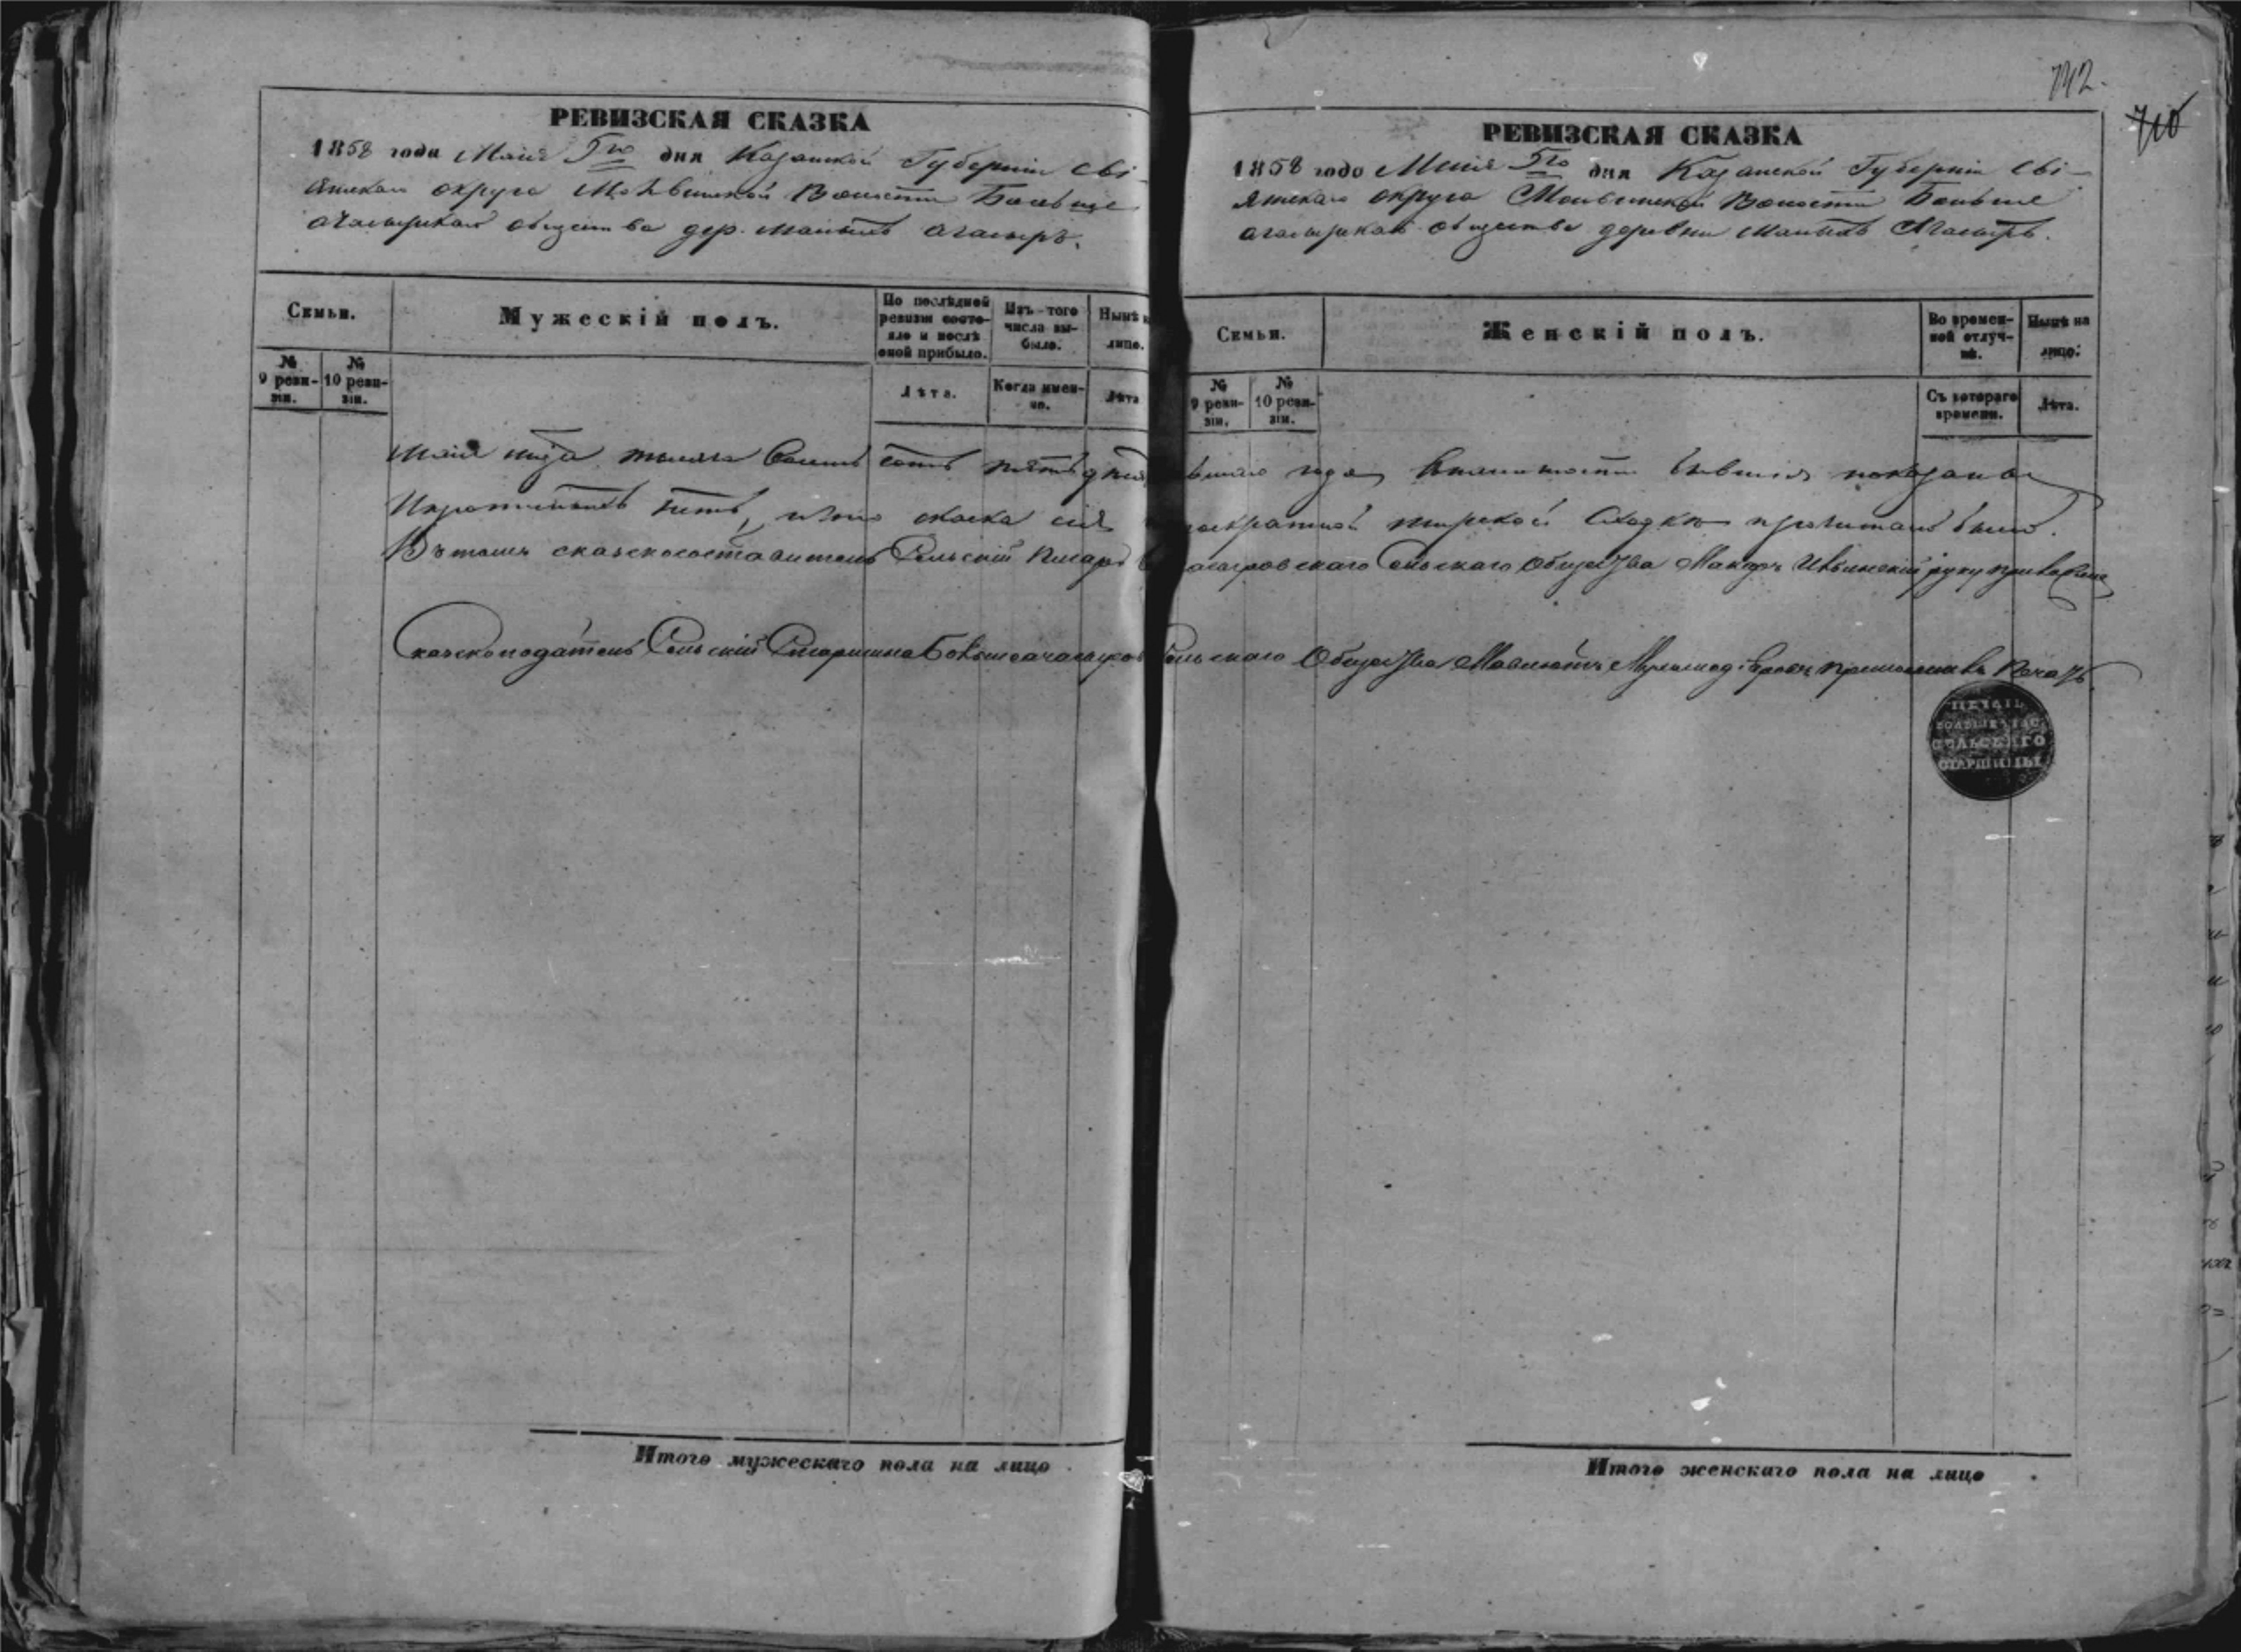 742.
710
РЕВИЗСКАЯ СКАЗКА
1858 года Маія 5го дня Казанской Губерніи Сві-
яжскаго округа Молвинской Волости Больше
ачасырскаго общества дер. Малыхъ Ачасыръ.
Семьи.
Мужескій полъ.
По послѣдней ревизіи состояло и послѣ оной прибыло.
Изъ того числа выбыло.
Нынѣ на лицо.
№ 9 ревизіи.
№ 10 ревизіи.
Лѣта.
Когда именно.
Лѣта
РЕВИЗСКАЯ СКАЗКА
1858 года Маія 5го дня Казанской Губерніи Сві-
яжскаго округа Молвинской Волости Больше
ачасырскаго общества деревни Малыхъ Ачасыръ.
Семьи.
Женскій полъ.
Во временной отлучкѣ.
Нынѣ на лицо.
№ 9 ревизіи.
№ 10 ревизіи.
Съ котораго времени.
Лѣта.
Маія тысяча восемь сотъ пятьде года показано
нѣтъ, и что сказка сія мірской сходкѣ прочитана была.
Въ томъ сказкосоставитель Сельскій Писарь Сельскаго Общества Макаръ Ильинскій руку приложилъ
Сказкоподатель Сельскій Старшина Большеачасыров Сельскаго Общества приложилъ Печать
ПЕЧАТЬ
БОЛЬШЕАЧАС
СЕЛЬСКАГО
СТАРШИНЫ
Итого мужескаго пола на лицо
Итого женскаго пола на лицо